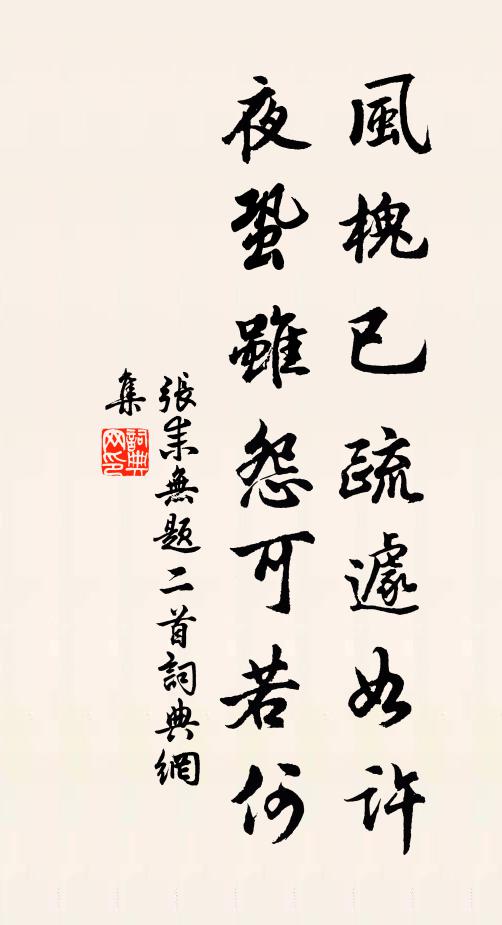 風槐已疏遽如許
夜蛩雖怨可若何
張耒無題二首詞典網
集
詞典網印